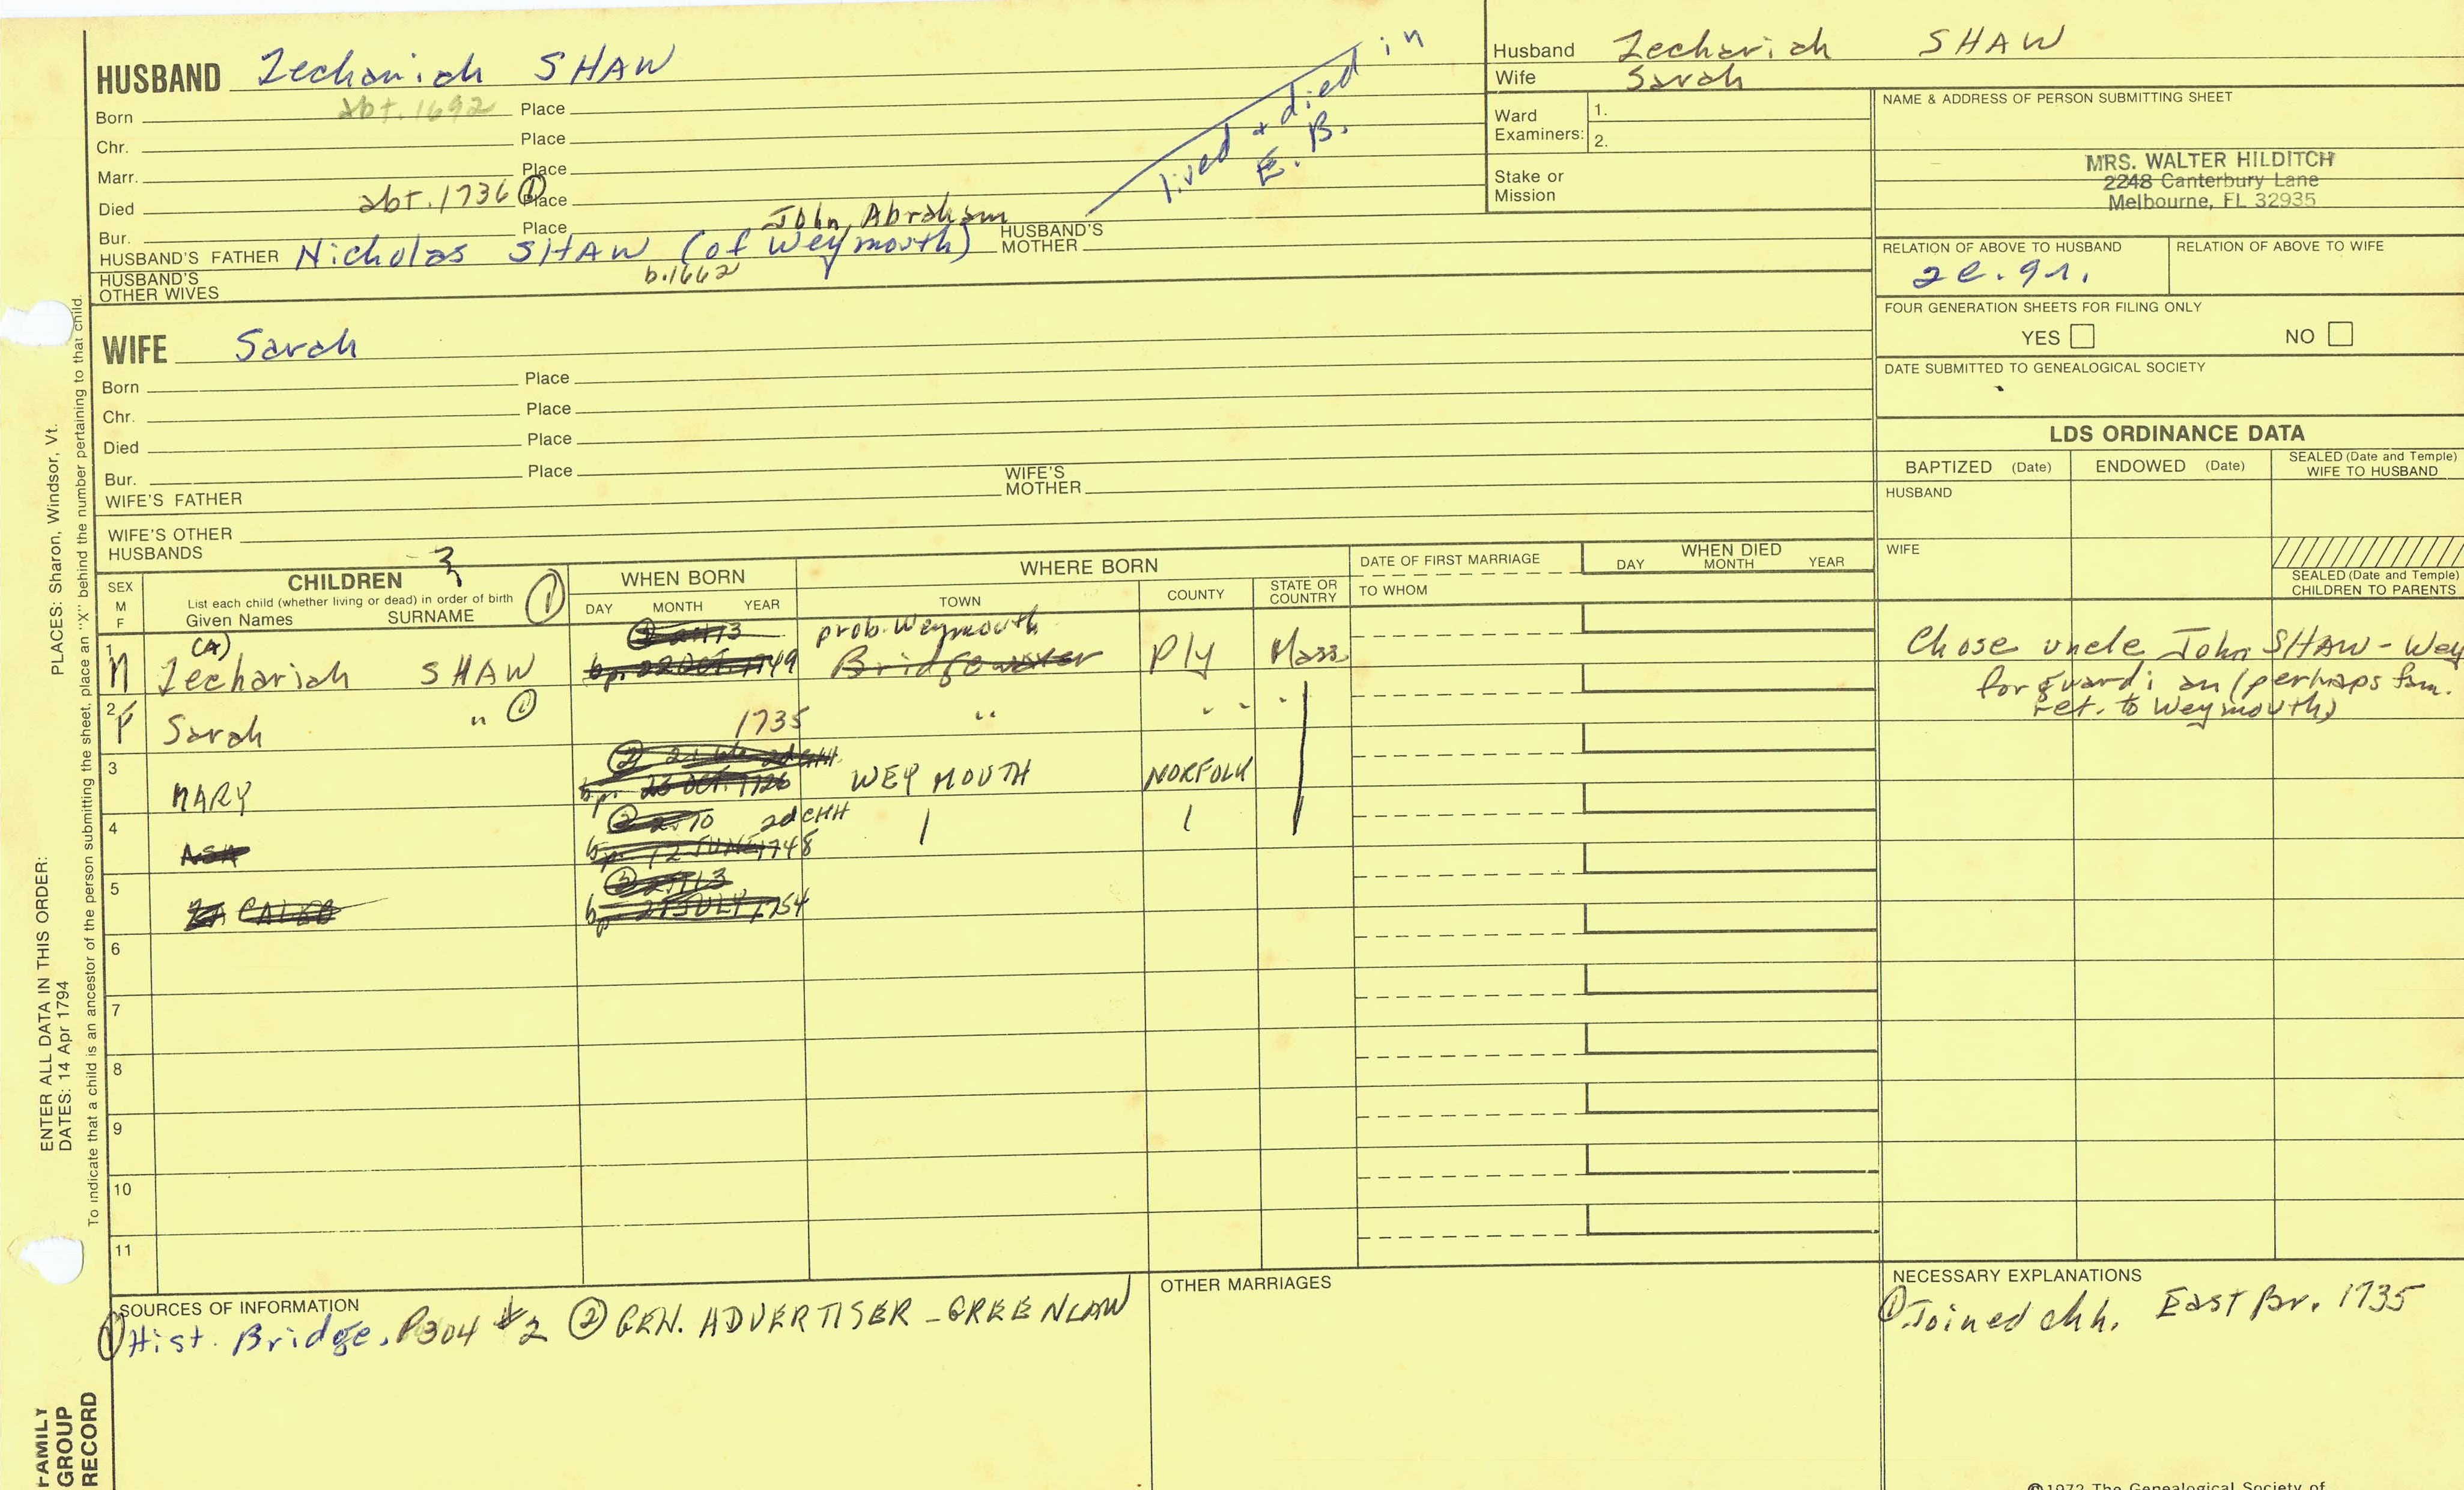 HUSBAND Zechariah SHAW
Born abt. 1692 Place
Chr. Place
Marr. Place
Died abt. 1736 ① Place
Bur. Place
John, Abraham
HUSBAND'S FATHER Nicholas SHAW (of Weymouth) HUSBAND'S MOTHER
b. 1662
HUSBAND'S OTHER WIVES
lived + died in
E. B.
WIFE Sarah
Born Place
Chr. Place
Died Place
Bur. Place
WIFE'S FATHER WIFE'S MOTHER
WIFE'S OTHER HUSBANDS
Husband Zechariah SHAW
Wife Sarah
Ward Examiners: 1.
2.
Stake or Mission
NAME & ADDRESS OF PERSON SUBMITTING SHEET
MRS. WALTER HILDITCH
2248 Canterbury Lane
Melbourne, FL 32935
RELATION OF ABOVE TO HUSBAND RELATION OF ABOVE TO WIFE
FOUR GENERATION SHEETS FOR FILING ONLY
YES NO
DATE SUBMITTED TO GENEALOGICAL SOCIETY
LDS ORDINANCE DATA
BAPTIZED (Date) ENDOWED (Date) SEALED (Date and Temple) WIFE TO HUSBAND
HUSBAND
WIFE
SEALED (Date and Temple) CHILDREN TO PARENTS
SEX M F
CHILDREN 3 ①
List each child (whether living or dead) in order of birth
Given Names SURNAME
WHEN BORN
DAY MONTH YEAR
WHERE BORN
TOWN COUNTY STATE OR COUNTRY
DATE OF FIRST MARRIAGE
TO WHOM
WHEN DIED
DAY MONTH YEAR
(A) prob. Weymouth
1 M Zechariah SHAW bp. 22 OCT. 1749 Bridgewater Ply Mass
Chose uncle John SHAW - Wey
for guardian (perhaps fam.
ret. to Weymouth)
2 F Sarah " ① 1735 " " "
②
3 MARY bp. 23 OCT. 1726 WEYMOUTH NORFOLK
② 2d CHH
4 ASA bp. 12 JUNE 1748
②
5 CALEB bp. 21 JULY 1754
6
7
8
9
10
11
SOURCES OF INFORMATION
① Hist. Bridge. P304 #2 ② GEN. ADVERTISER - GREENLAW
OTHER MARRIAGES
NECESSARY EXPLANATIONS
① Joined chh. East Br. 1735
ENTER ALL DATA IN THIS ORDER:
DATES: 14 Apr 1794 PLACES: Sharon, Windsor, Vt.
To indicate that a child is an ancestor of the person submitting the sheet, place an "X" behind the number pertaining to that child.
FAMILY
GROUP
RECORD
©1972 The Genealogical Society of